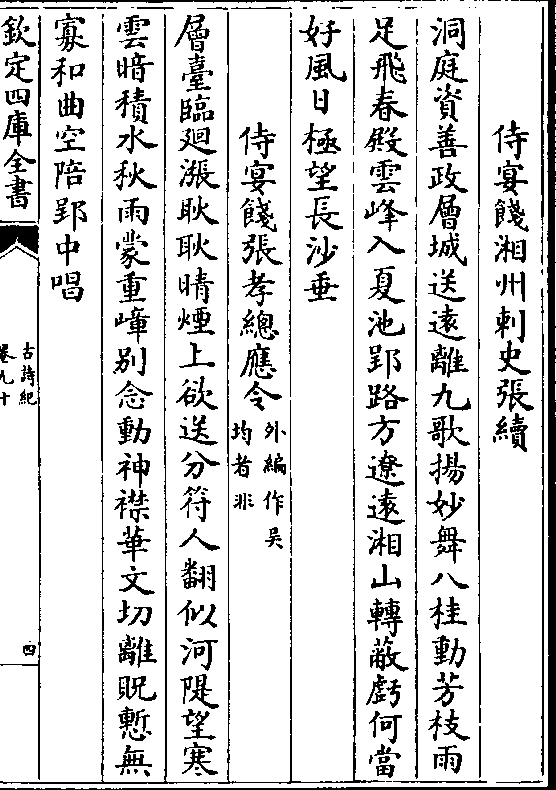 侍宴餞湘州刺史張續
洞庭資善政層城送遠離九歌揚妙舞八桂動芳枝雨
足飛春殿雲峰入夏池郢路方遼遠湘山轉蔽虧何當
好風日極望長沙垂
侍宴餞張孝總應令外編作吳
均者非
層臺臨迥漲耿耿晴煙上欲送分符人翻似河隄望寒
雲暗積水秋雨蒙重嶂别念動神襟華文切離貺慙無
寡和曲空陪郢中唱
欽定四庫全書
古詩紀
卷九十
四